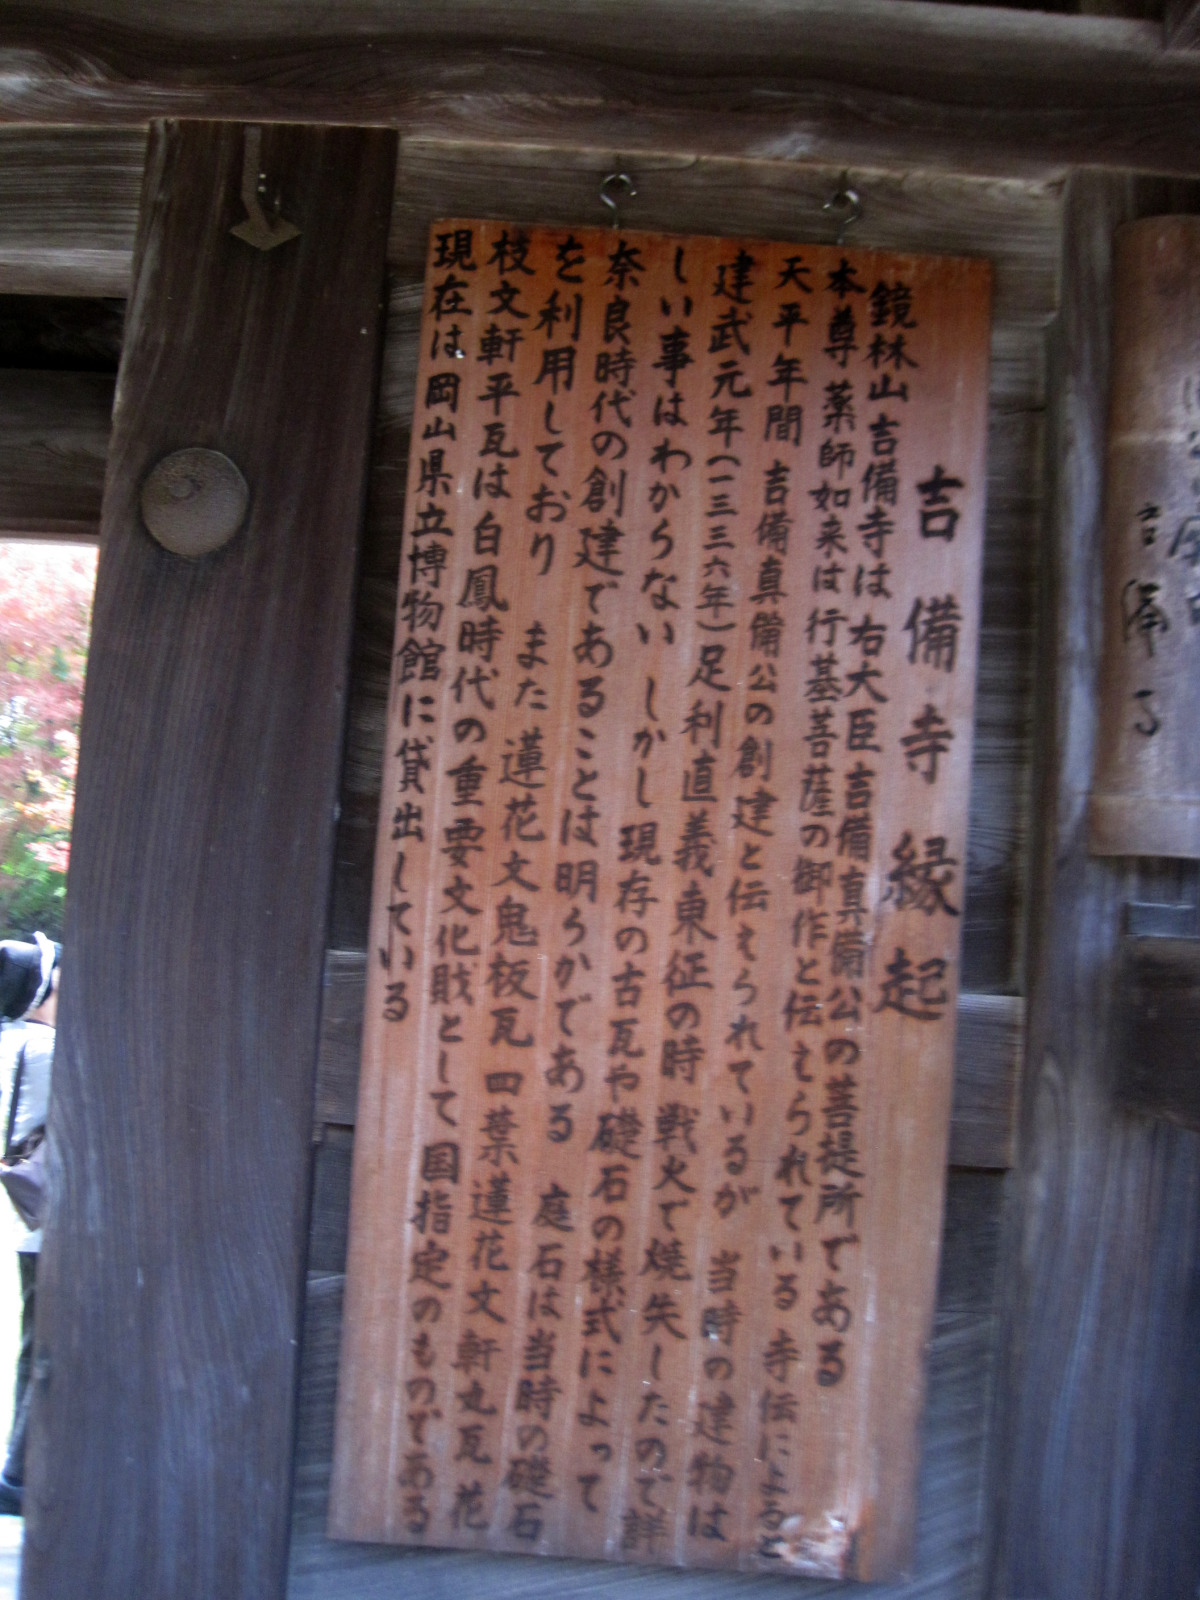 吉備寺縁起
鏡林山吉備寺は右大臣吉備真備公の菩提所である
本尊薬師如来は行基菩薩の御作と伝えられている 寺伝によると
天平年間 吉備真備公の創建と伝えられているが 当時の建物は
建武元年(一三三六年)足利直義東征の時 戦火で焼失したので詳
しい事はわからない しかし現存の古瓦や礎石の様式によって
奈良時代の創建であることは明らかである 庭石は当時の礎石
を利用しており また蓮花文鬼板瓦 四葉蓮花文軒丸瓦 花
枝文軒平瓦は白鳳時代の重要文化財として国指定のものである
現在は岡山県立博物館に貸出している